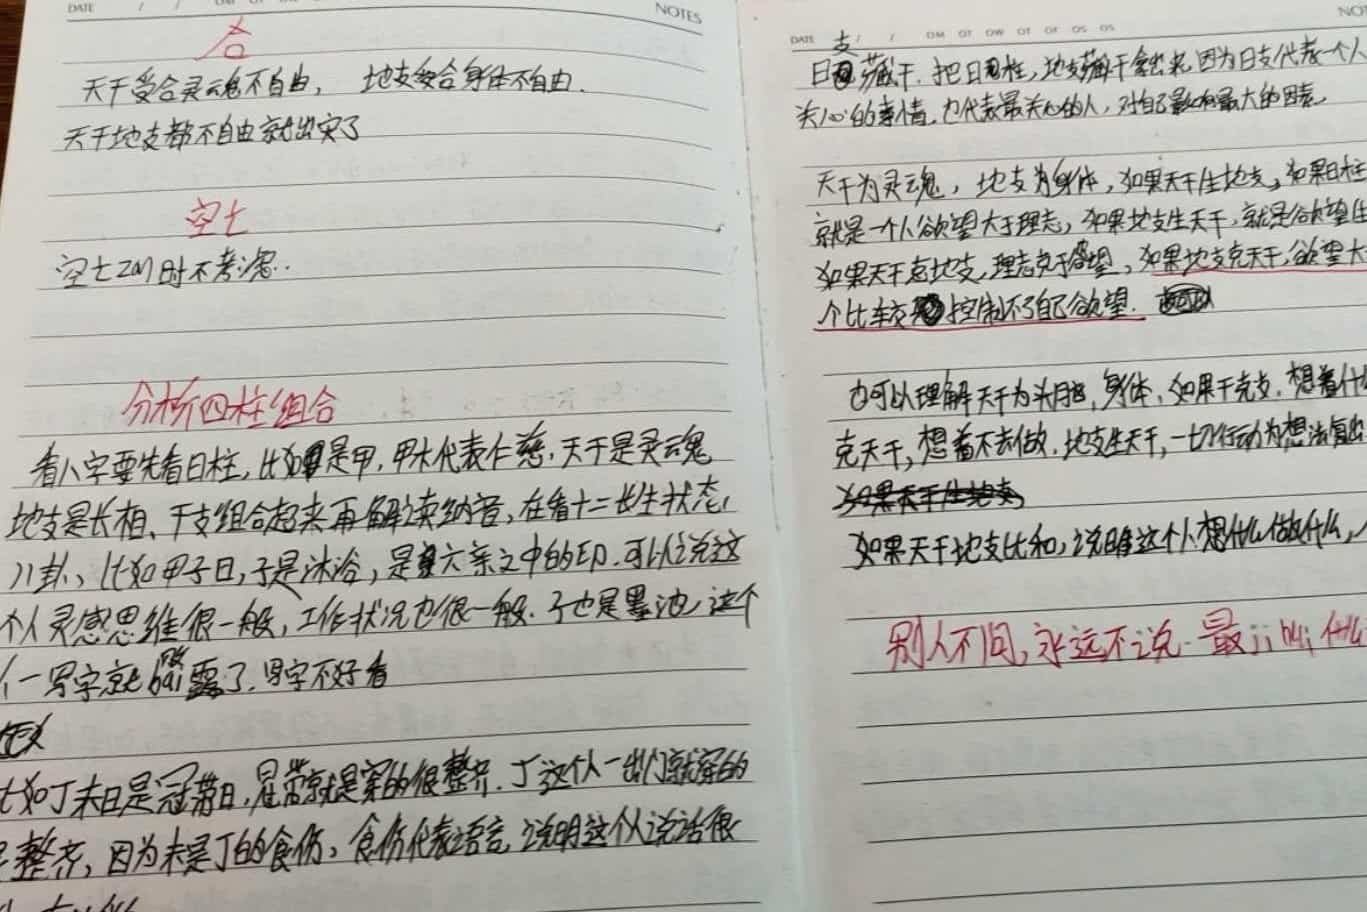 DATE / /
NOTES
合
天干受合灵魂不自由， 地支受合身体不自由.
天干地支都不自由就出灾了
空亡
空亡 时不考虑..
分析四柱组合
看八字要先看日柱，比如是甲，甲木代表仁慈，天干是灵魂
地支是长相、干支组合起来再解读纳音，在看十二长生状态，
八卦、比如甲子日，子是沐浴，是六亲之中的印.可以说这
个人灵感思维很一般，工作状况也很一般.子也是墨池，这个
人一写字就bai露了.写字不好看
比如丁未日是冠带日，冠带就是穿的很整齐.丁这个人一出门就穿的
整齐，因为未是丁的食伤，食伤代表语言，说明这个人说话很
DATE / /
NOT
日支藏干.把日柱，地支藏干拿出来.因为日支代表一个人
关心的事情，也代表最关心的人，对自己影响最大的因素。
天干为灵魂，地支为身体，如果天干生地支，如果日柱
就是一个人欲望大于理志，如果地支生天干，就是欲望生
如果天干克地支，理志克于欲望，如果地支克天干，欲望大
个比较控制不了自己欲望.
也可以理解天干为头脑，身体.如果干克支.想着什么
克天干，想着不去做.地支生天干，一切行动为想法
如果天干地支比和，说明这个人想什么做什么，
别人不问，永远不说.最ji hui什么